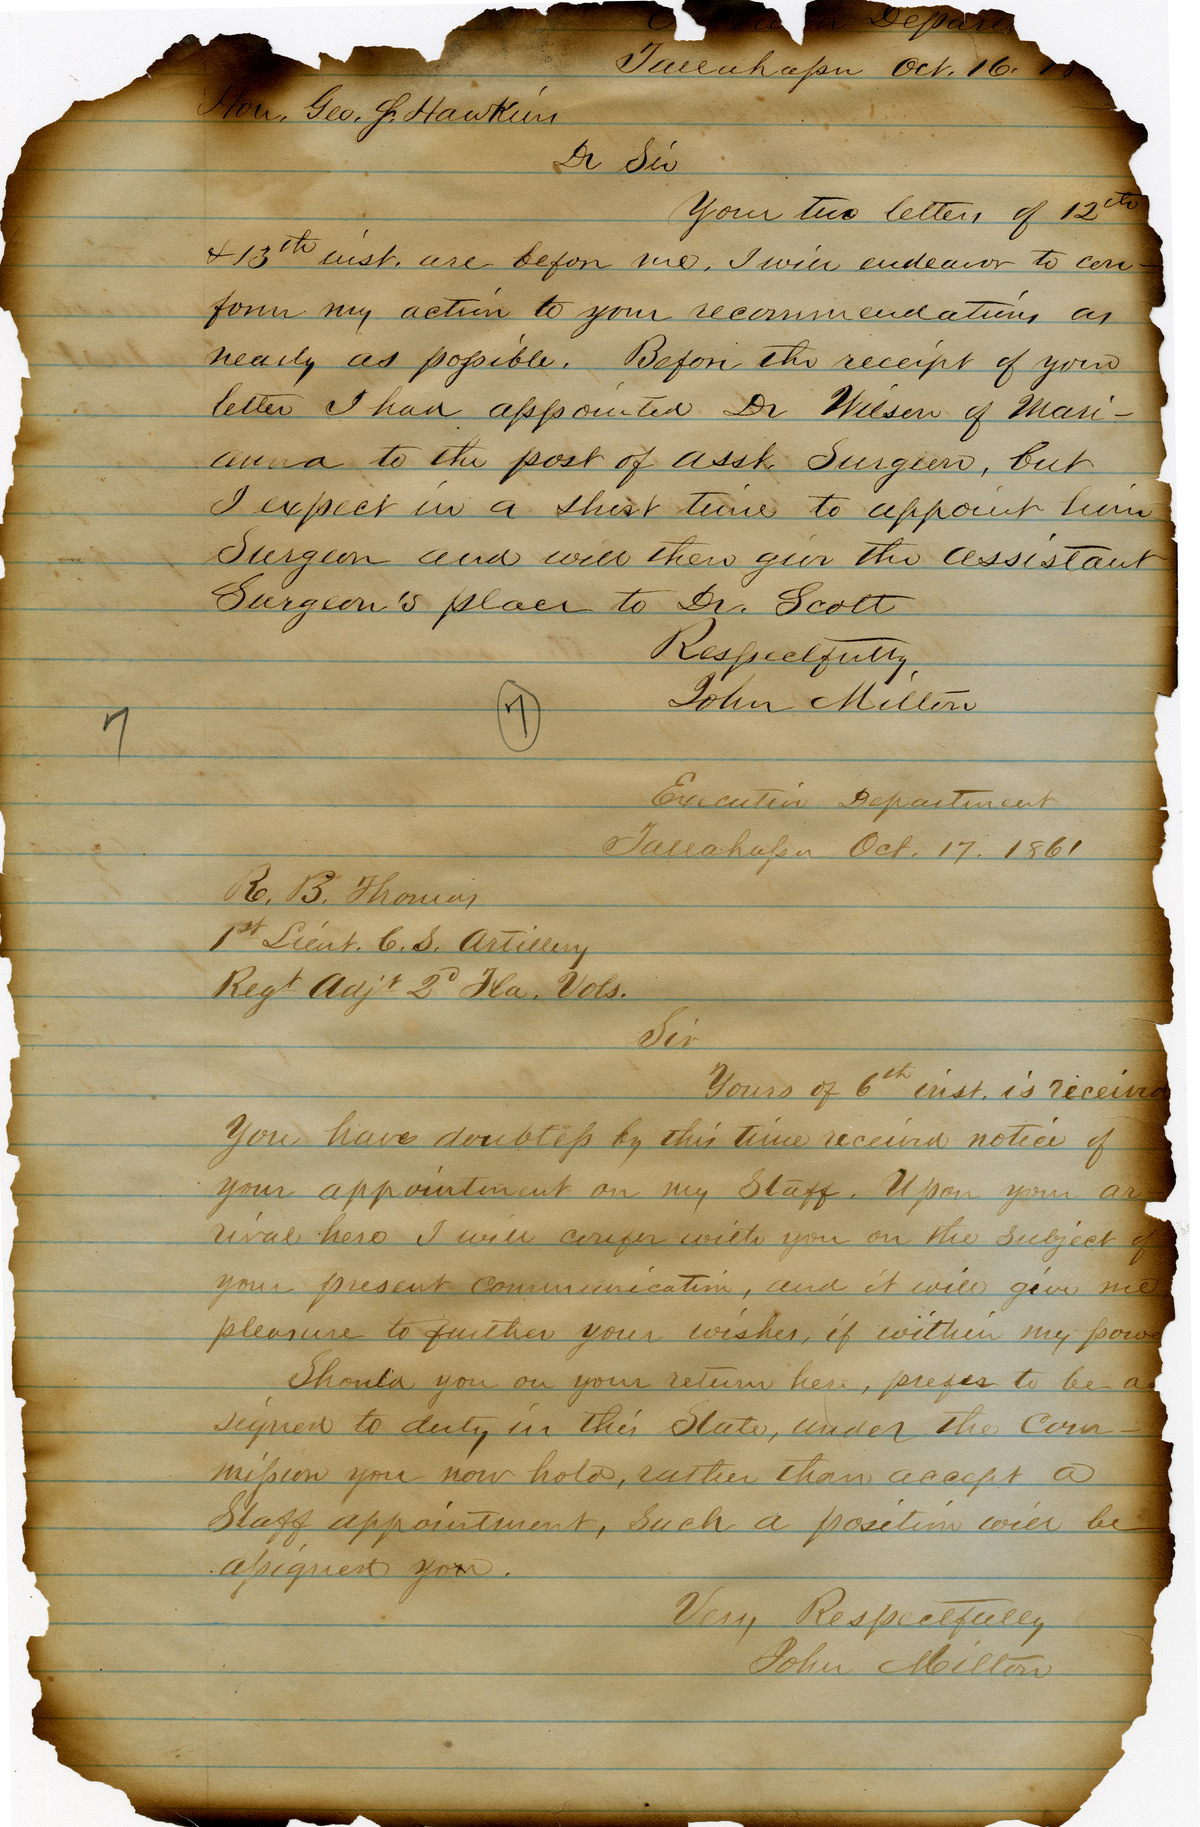 Depart
Tallahassee Oct. 16. 18
Hon. Geo. S. Hawkins
Dr Sir
Your two letters of 12th
& 13th inst. are before me. I will endeavor to con-
form my action to your recommendations as
nearly as possible. Before the receipt of your
letter I had appointed Dr Wilson of Mari-
anna to the post of Asst. Surgeon, but
I expect in a short time to appoint him
Surgeon and will then give the Assistant
Surgeon's place to Dr. Scott
Respectfully
John Milton
7 7
Executive Department
Tallahassee Oct. 17. 1861
R. B. Thomas
1st Lieut. C. S. Artillery
Regt Adjt 2d Fla. Vols.
Sir
Yours of 6th inst. is received
You have doubtless by this time received notice of
your appointment on my Staff. Upon your ar
rival here I will confer with you on the subject of
your present communication, and it will give me
pleasure to further your wishes, if within my powe
Should you on your return here, prefer to be as
signed to duty in this State, under the Com-
mission you now hold, rather than accept a
Staff appointment, such a position will be
assigned you.
Very Respectfully
John Milton